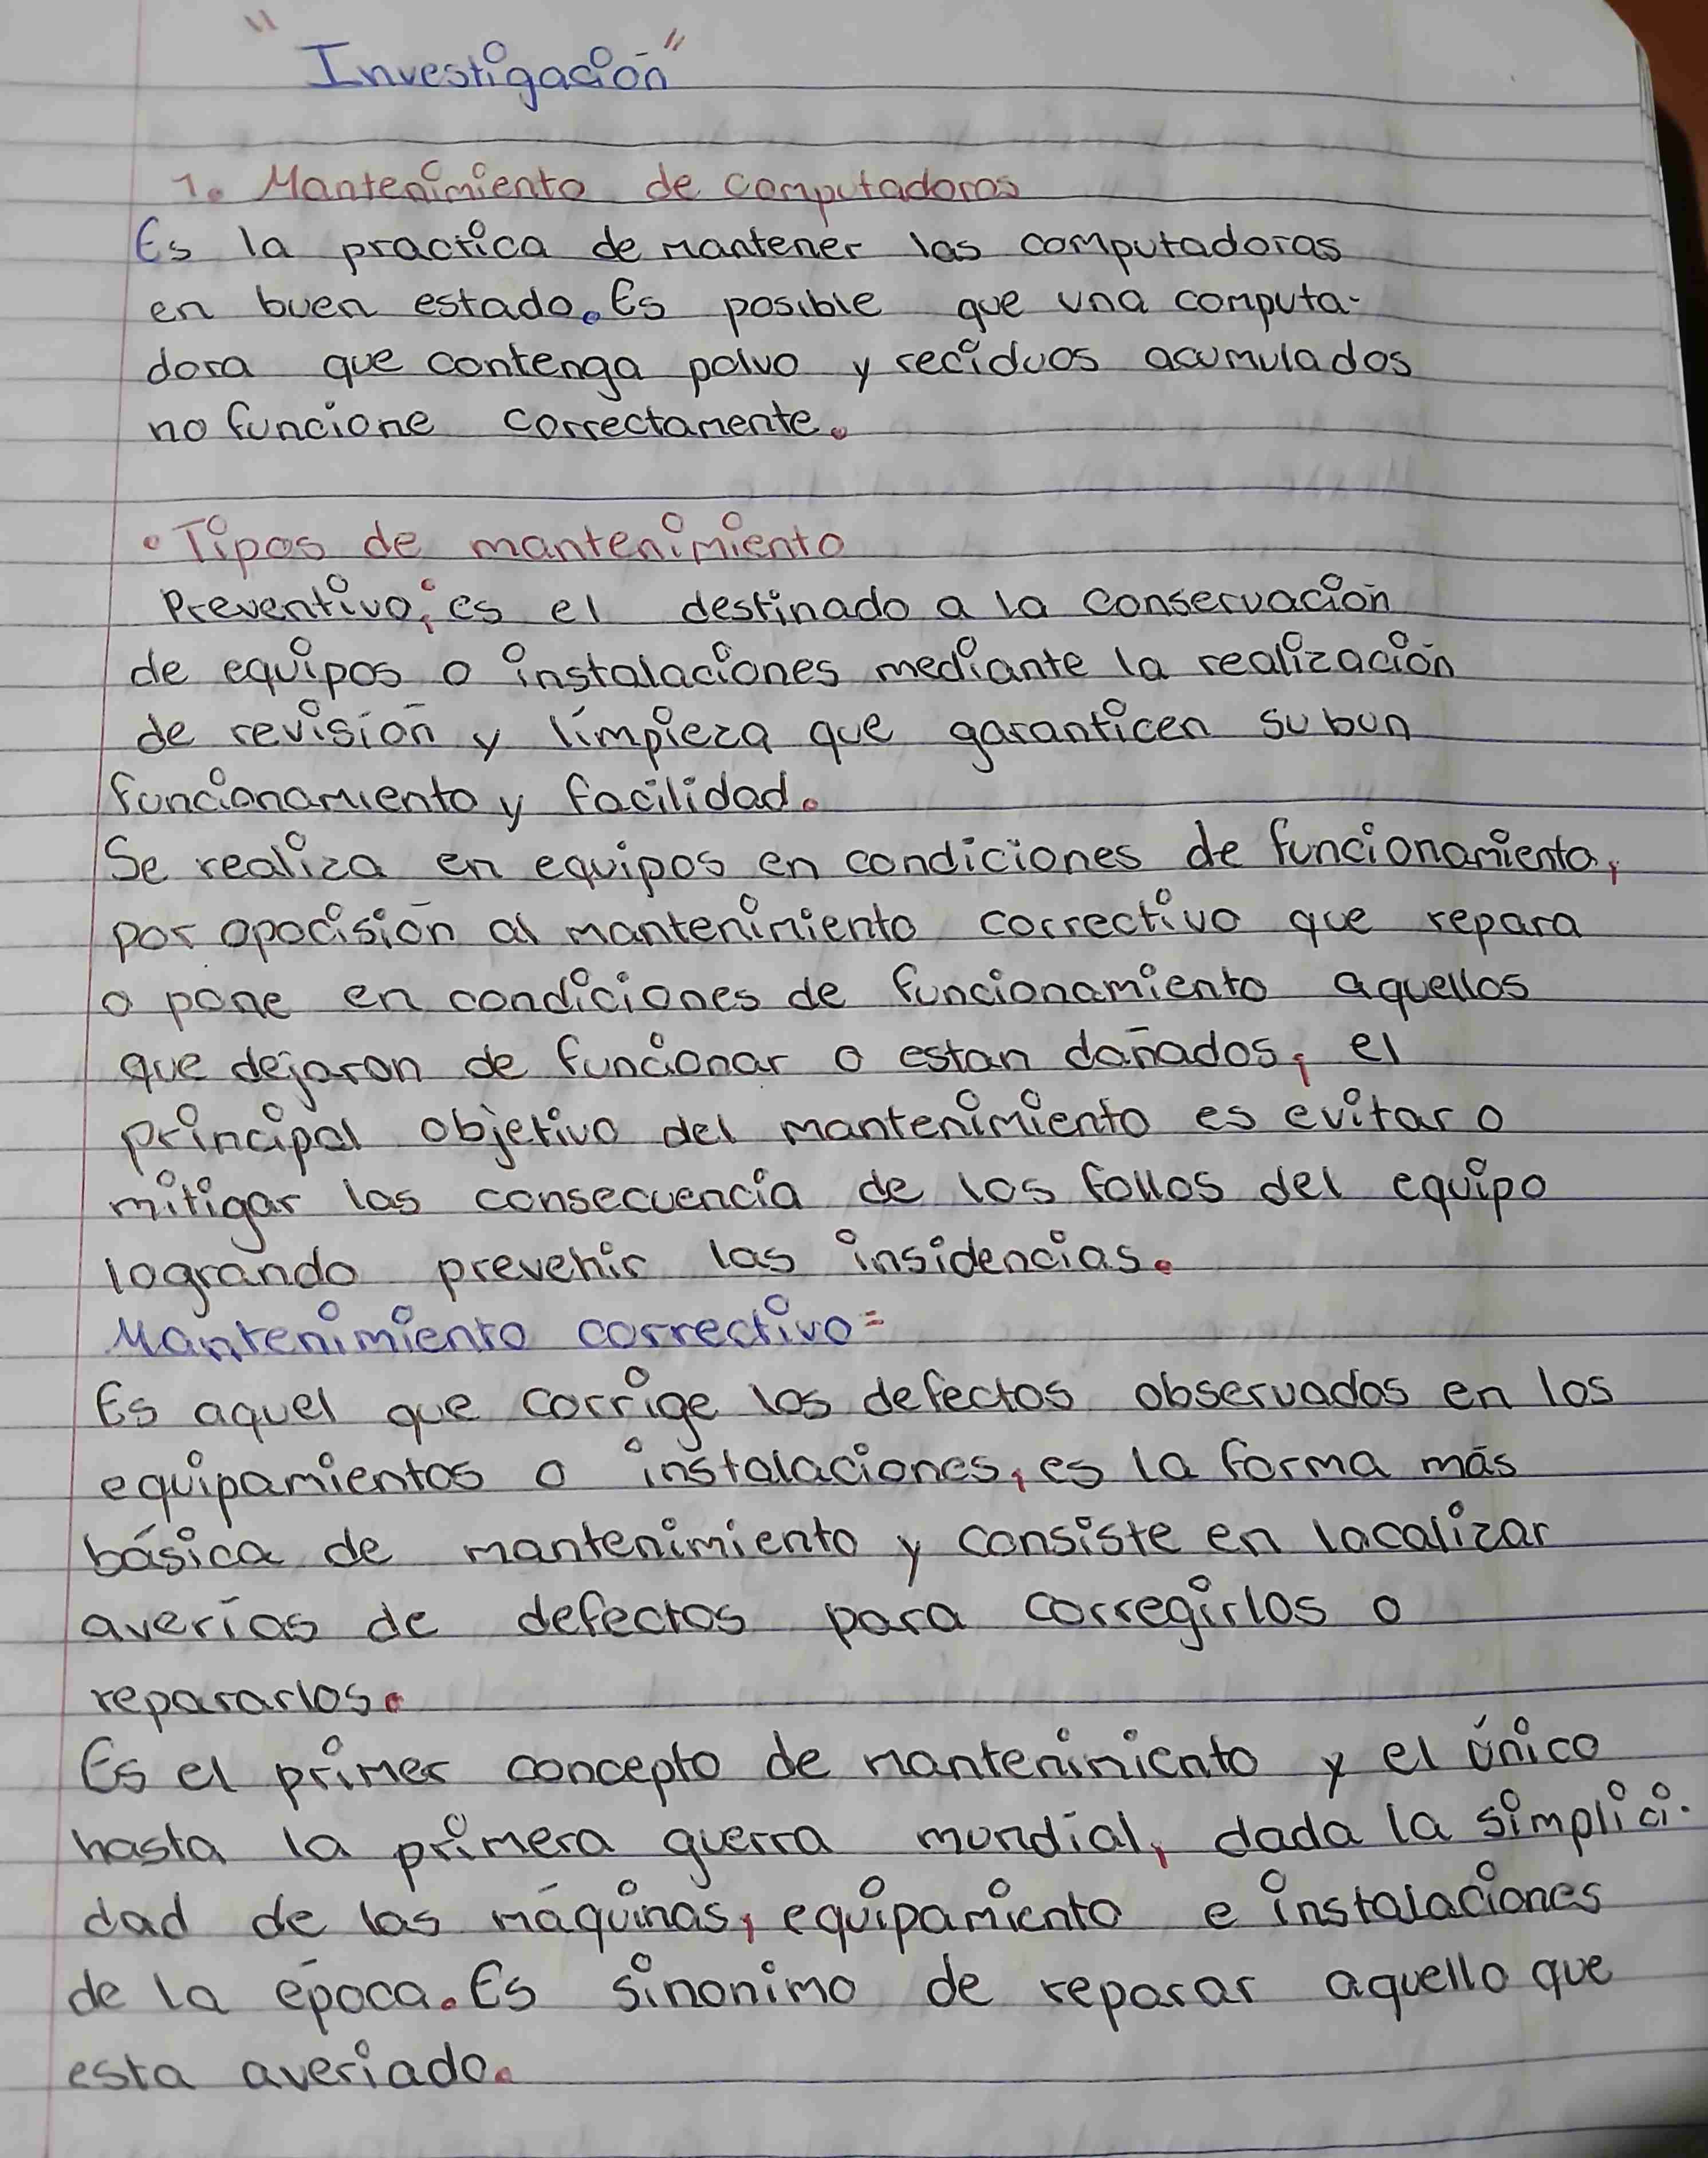 "Investigación"
1. Mantenimiento de computadoras
Es la practica de mantener las computadoras
en buen estado. Es posible que una computa-
dora que contenga polvo y reciduos acumulados
no funcione correctamente.
• Tipos de mantenimiento
Preventivo; es el destinado a la conservación
de equipos o instalaciones mediante la realización
de revisión y límpieza que garanticen su bun
funcionamiento y facilidad.
Se realiza en equipos en condiciones de funcionamiento,
por opocisión al mantenimiento correctivo que repara
o pone en condiciones de funcionamiento aquellos
que dejaron de funcionar o estan dañados, el
principal objetivo del mantenimiento es evitar o
mitigar las consecuencia de los fallos del equipo
logrando prevenir las insidencias.
Mantenimiento correctivo=
Es aquel que corrige los defectos observados en los
equipamientos o instalaciones, es la forma más
básica de mantenimiento y consiste en localizar
averías de defectos para corregirlos o
repararlos.
Es el primer concepto de mantenimiento y el único
hasta la primera guerra mundial, dada la simplici-
dad de las máquinas, equipamiento e instalaciones
de la época. Es sinonimo de reparar aquello que
esta averiado.